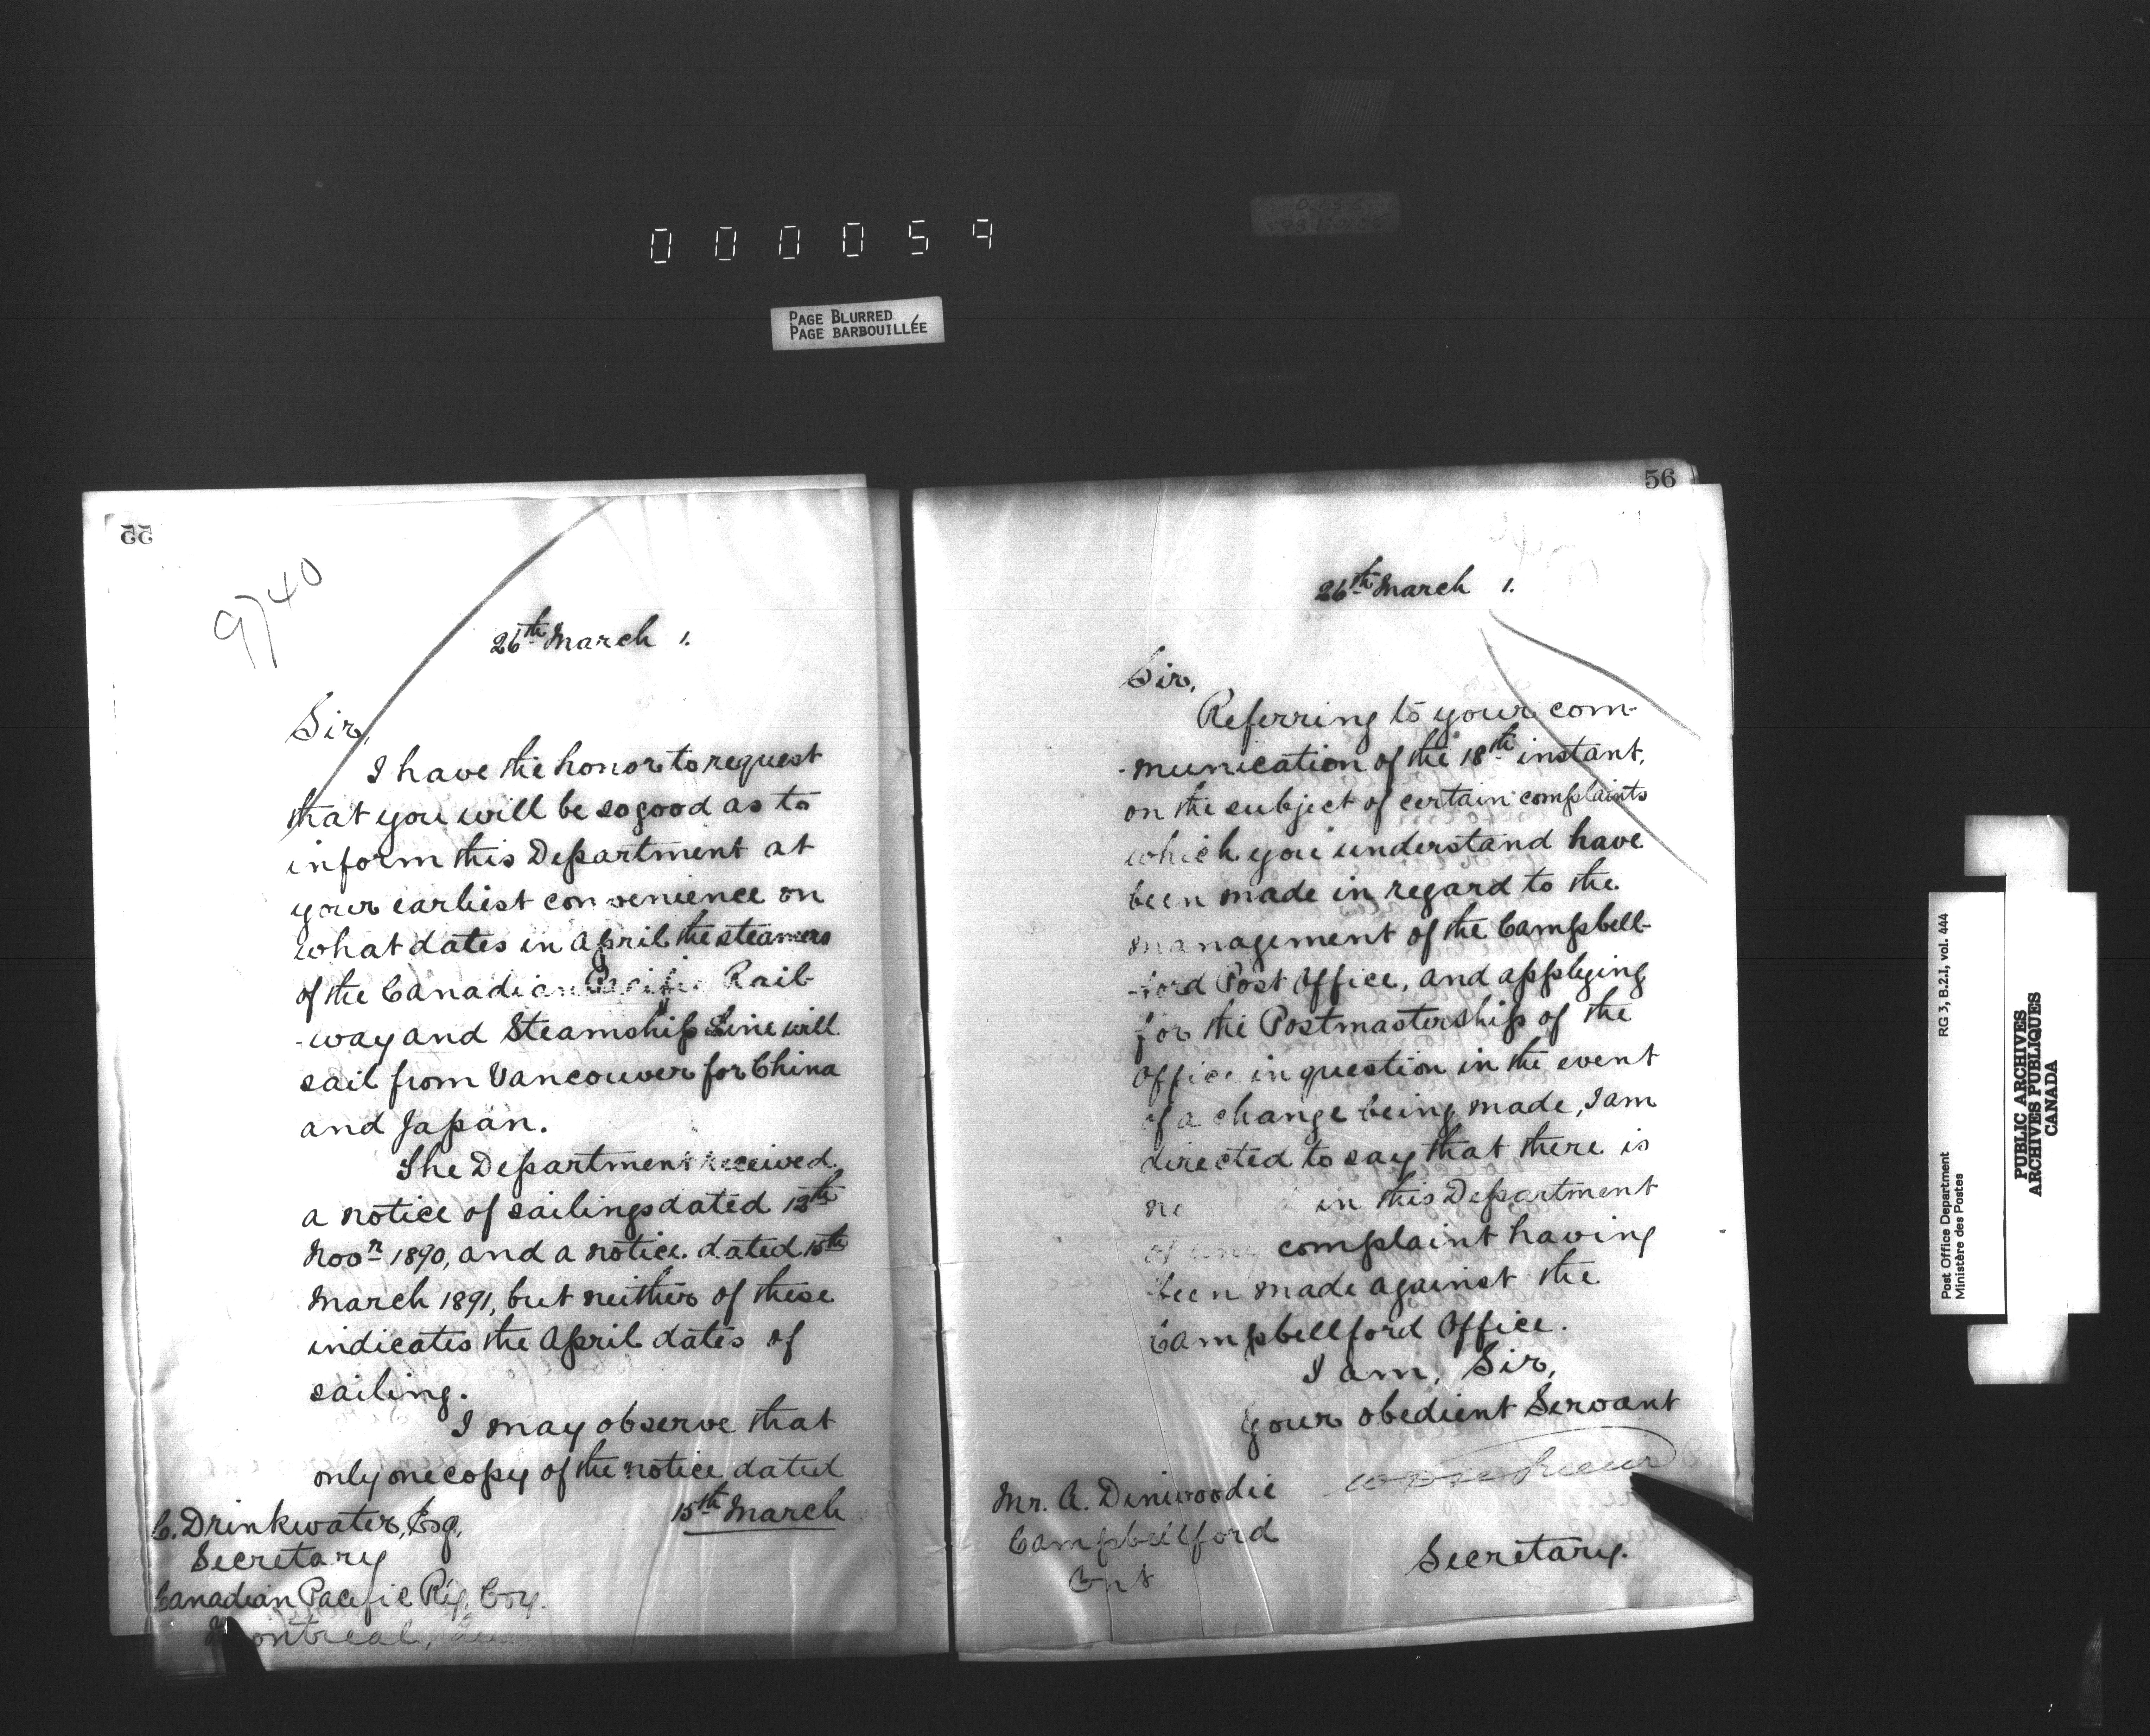 000059
PAGE BLURRED
PAGE BARBOUILLÉE
55
9740
26th March 1.
Sir,
I have the honor to request
that you will be so good as to
inform this Department at
your earliest convenience on
what dates in April the steamers
of the Canadian Pacific Rail-
-way and Steamship Line will
sail from Vancouver for China
and Japan.
The Department received
a notice of sailings dated 13th
Novr 1890, and a notice dated 15th
March 1891, but neither of these
indicates the April dates of
sailing.
I may observe that
only one copy of the notice dated
15th March
C. Drinkwater, Esq,
Secretary
Canadian Pacific Ry. Coy.
Montreal,
56
26th March 1.
Sir,
Referring to your com-
-munication of the 18th instant,
on the subject of certain complaints
which you understand have
been made in regard to the
management of the Campbell-
-ford Post Office, and applying
for the Postmastership of the
Office in question in the event
of a change being made, I am
directed to say that there is
in this Department
of any complaint having
been made against the
Campbellford Office.
I am, Sir,
Your obedient Servant
Secretary.
Mr. A. Dinwoodie
Campbellford
Ont
Post Office Department
Ministère des Postes
RG 3, B.2.I, vol. 444
PUBLIC ARCHIVES
ARCHIVES PUBLIQUES
CANADA